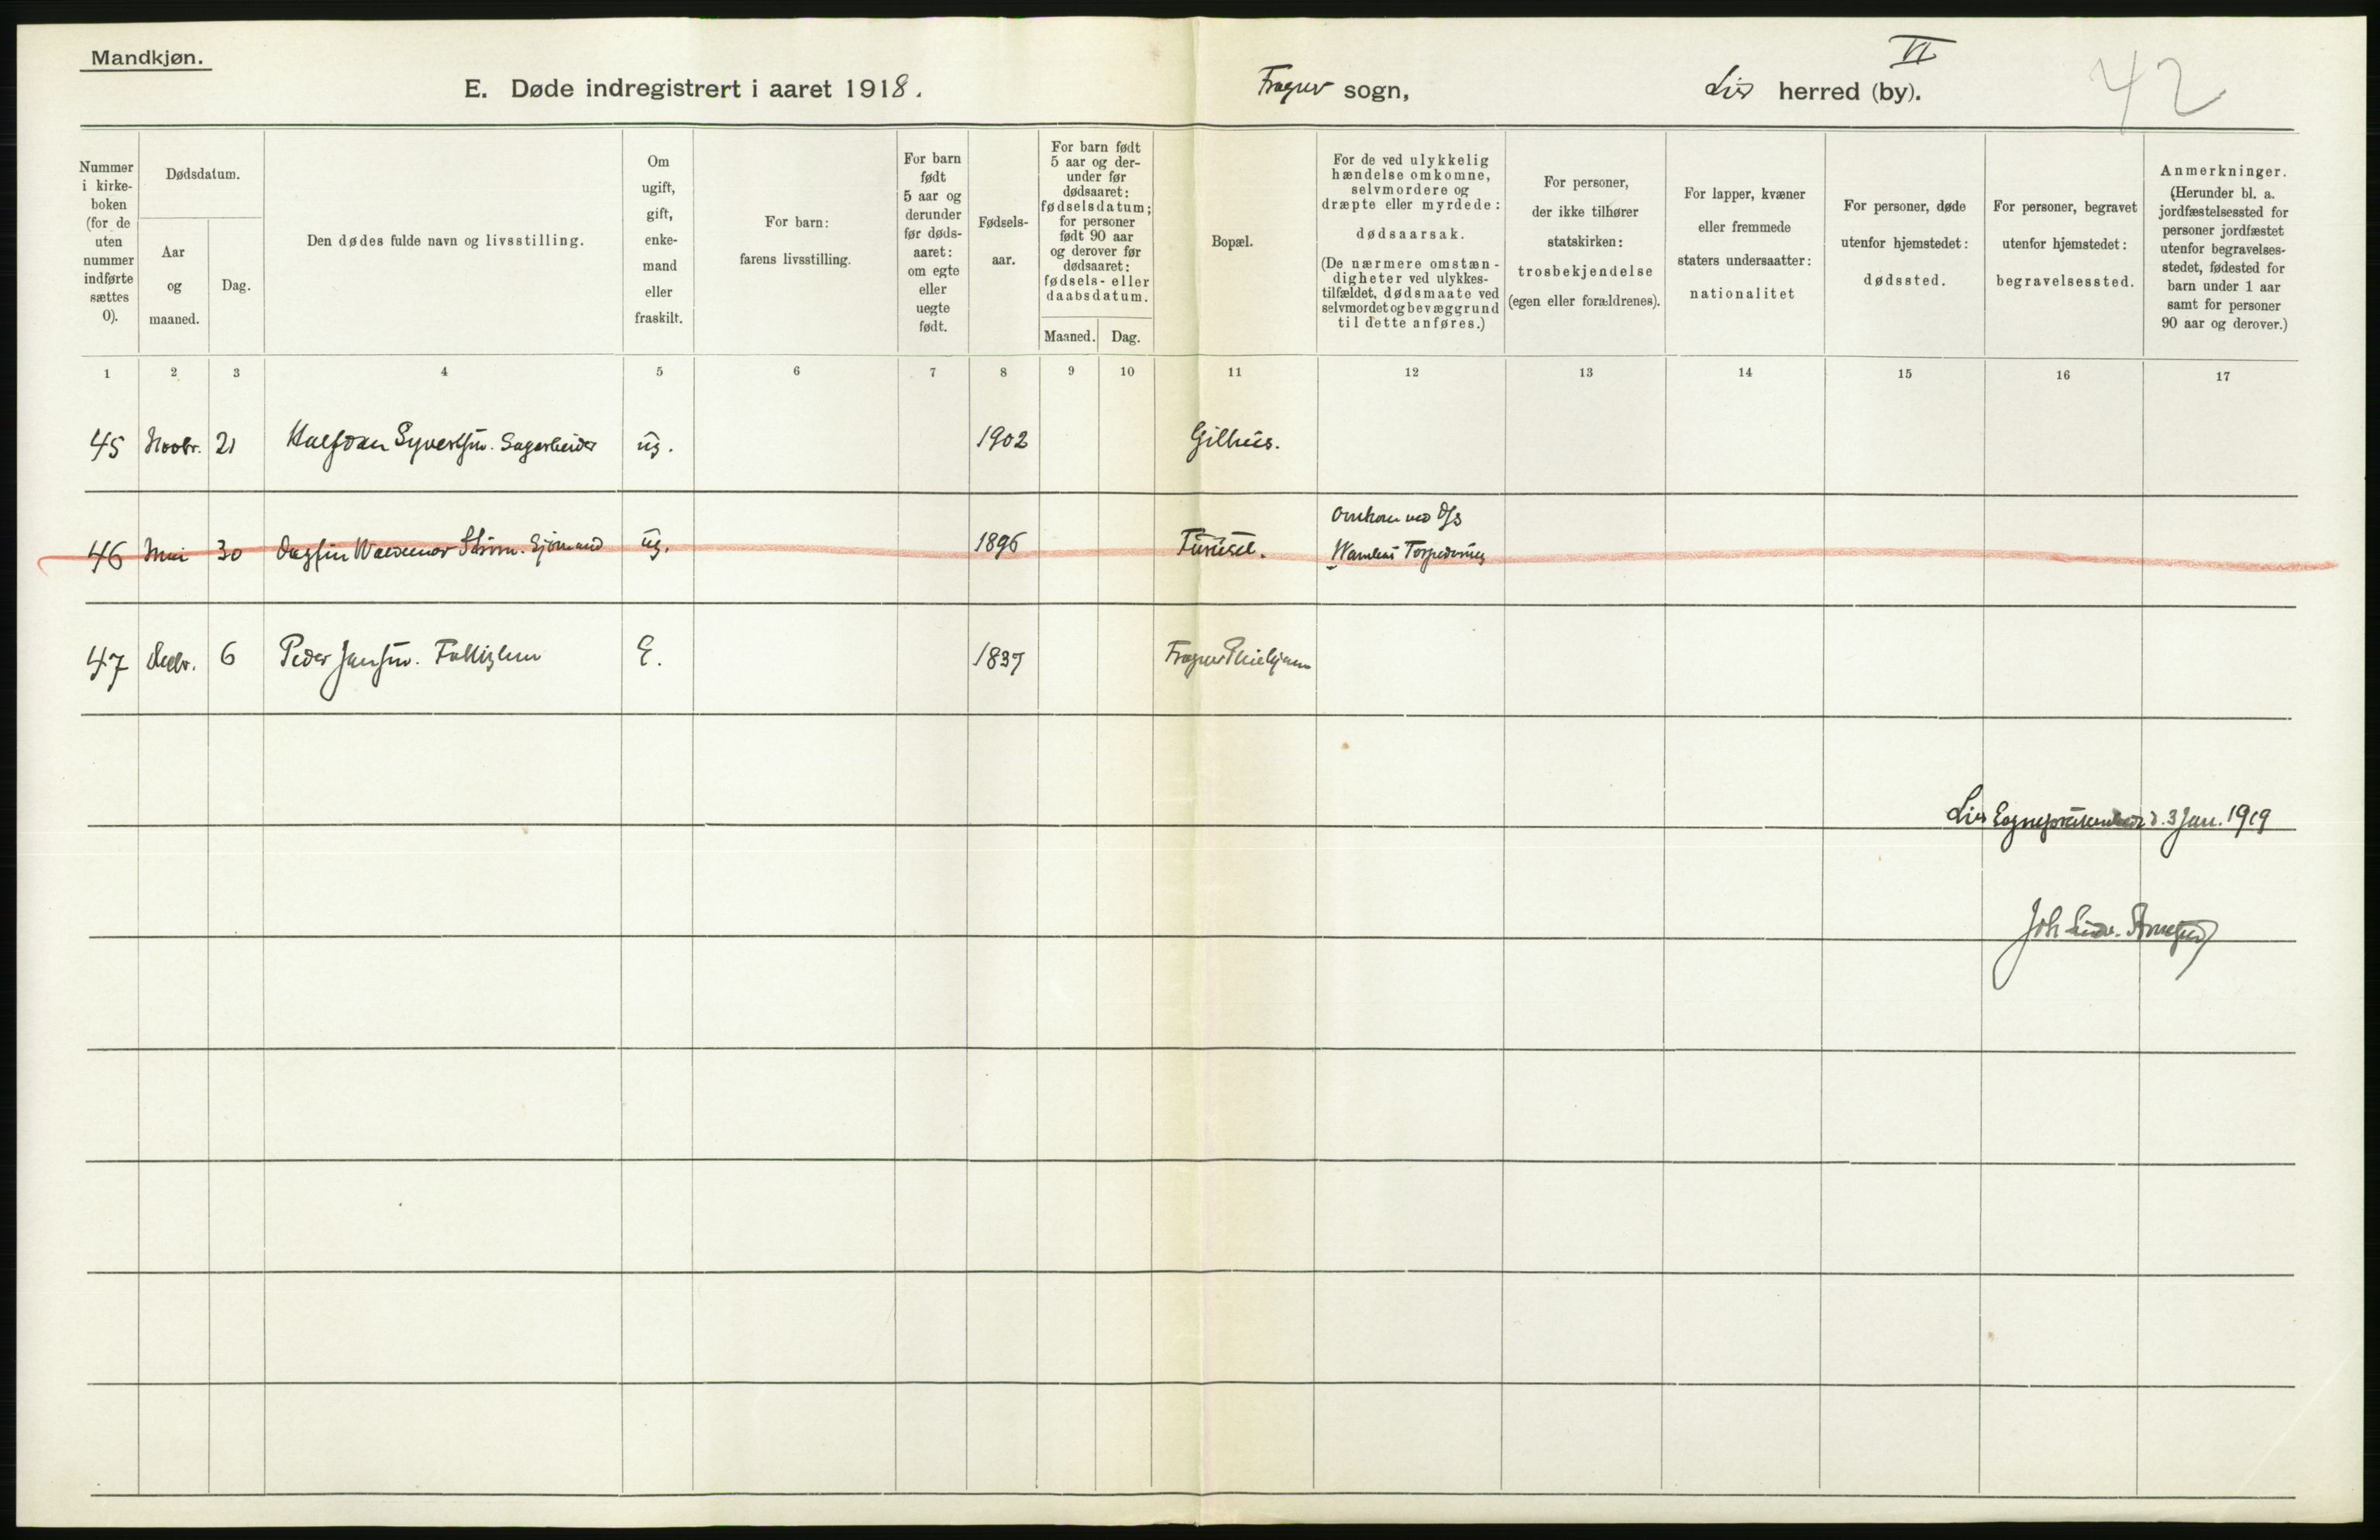 Mandkjøn.
VI
42
E. Døde indregistrert i aaret 1918.
Frogner sogn,
Lier herred (by).
Nummer
i kirke-
boken
(for de
uten
nummer
indførte
sættes
0).
Dødsdatum.
Aar
og
maaned.
Dag.
Den dødes fulde navn og livsstilling.
Om
ugift,
gift,
enke-
mand
eller
fraskilt.
For barn:
farens livsstilling.
For barn
født
5 aar og
derunder
før døds-
aaret:
om egte
eller
uegte
født.
Fødsels-
aar.
For barn født
5 aar og der-
under før
dødsaaret:
fødselsdatum;
for personer
født 90 aar
og derover før
dødsaaret:
fødsels- eller
daabsdatum.
Maaned.
Dag.
Bopæl.
For de ved ulykkelig
hændelse omkomne,
selvmordere og
dræpte eller myrdede:
dødsaarsak.
(De nærmere omstæn-
digheter ved ulykkes-
tilfældet, dødsmaate ved
selvmordet og bevæggrund
til dette anføres.)
For personer,
der ikke tilhører
statskirken:
trosbekjendelse
(egen eller forældrenes).
For lapper, kvæner
eller fremmede
staters undersaatter:
nationalitet
For personer, døde
utenfor hjemstedet:
dødssted.
For personer, begravet
utenfor hjemstedet:
begravelsessted.
Anmerkninger.
(Herunder bl. a.
jordfæstelsessted for
personer jordfæstet
utenfor begravelses-
stedet, fødested for
barn under 1 aar
samt for personer
90 aar og derover.)
1 2 3 4 5 6 7 8 9 10 11 12 13 14 15 16 17
45 Novbr. 21 Halfdan Syvertsen. Sagarbeider ug. 1902 Gilhus.
Omkom ved D/S
46 Mai 30 Dagfin Waldemar Strøm. Sjømand ug. 1896 Furusel. Torpedering
47 Decbr. 6 Peder Jensen. Fattiglem E. 1837 Frogner Pleiehjem
Lier Sogneprestembede d. 3 Jan. 1919
Joh.